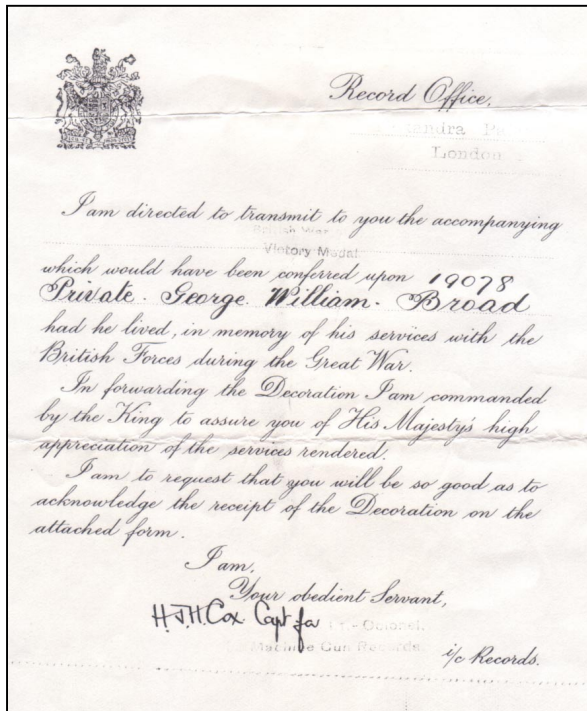 Record Office.
London
I am directed to transmit to you the accompanying
British War
Victory Medal
which would have been conferred upon 19078
Private. George. William. Broad
had he lived, in memory of his services with the
British Forces during the Great War.
In forwarding the Decoration I am commanded
by the King to assure you of His Majesty's high
appreciation of the services rendered.
I am to request that you will be so good as to
acknowledge the receipt of the Decoration on the
attached form.
I am,
Your obedient Servant,
H.J.H. Cox. Capt for
Lt.- Colonel.
Machine Gun Records.
i/c Records.